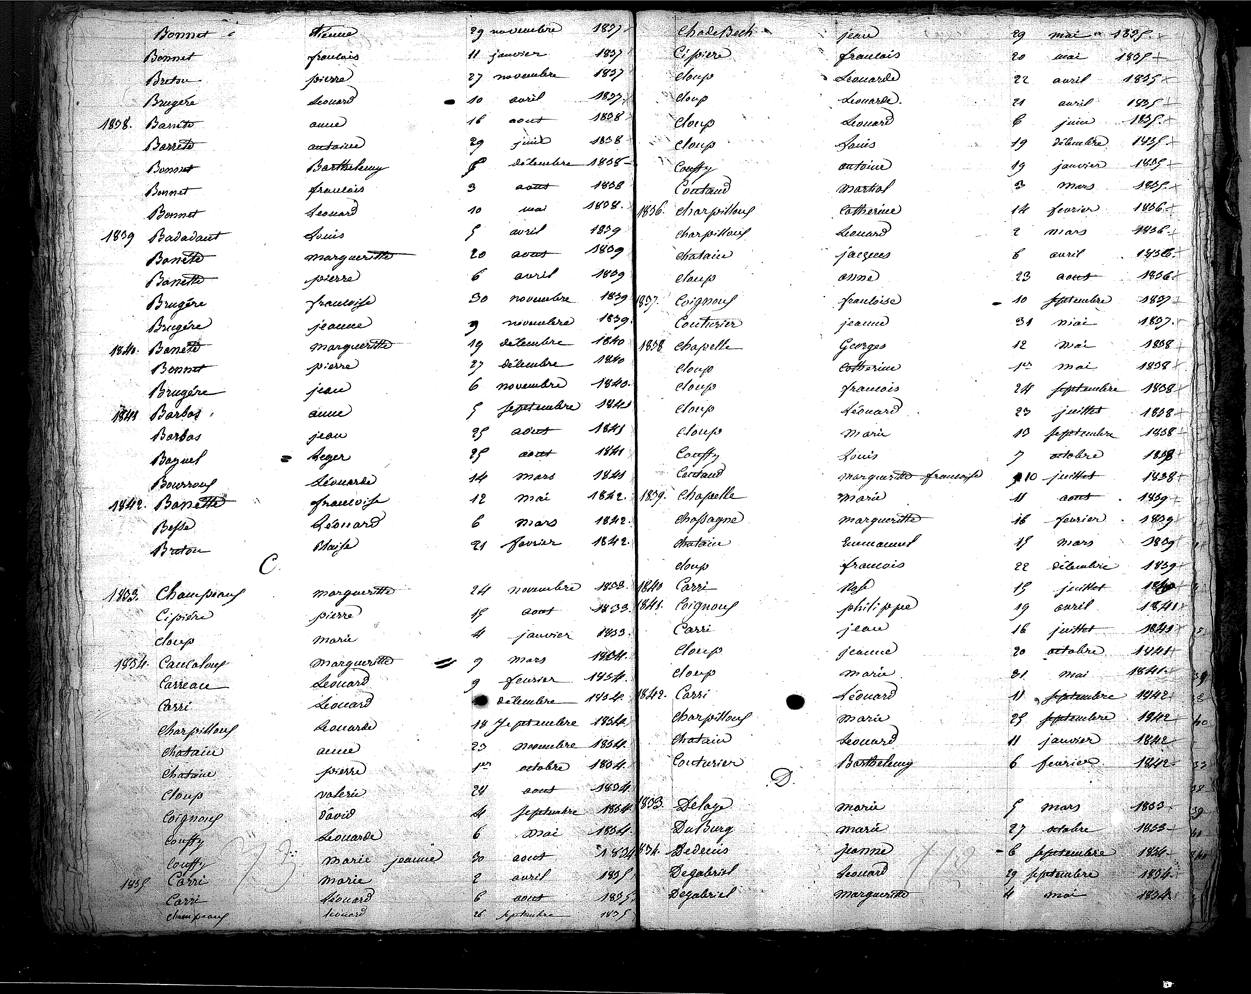 Bonnet etienne 29 novembre 1837
Bonnet francois 11 janvier 1837
Breton pierre 27 novembre 1837
Brugére Leonard 10 avril 1837
1838. Barreto anne 16 aout 1838
Barreto antoine 29 juin 1838
Bonnet Barthelemy 5 décembre 1838
Bonnet francois 3 aout 1838
Bonnet Leonard 10 mai 1838.
1839 Badadaut Louis 5 avril 1839
Banette margueritte 20 aout 1839
Banette pierre 6 avril 1839
Brugére francoise 30 novembre 1839
Brugére jeanne 9 novembre 1839.
1840. Banette margueritte 19 décembre 1840
Bonnet pierre 27 décembre 1840
Brugére jean 6 novembre 1840.
1841 Barbas anne 5 septembre 1841
Barbas jean 25 aout 1841
Bayuel = Leger 25 aout 1841
Bourroux Léonarde 14 mars 1841
1842. Banette francoise 12 mai 1842.
Besse Léonard 6 mars 1842.
Breton Blaise 21 fevrier 1842
C.
1833. Champeaux margueritte 24 novembre 1833
Cipiére pierre 15 aout 1833.
Cloup marie 4 janvier 1833.
1834. Caucaloux Margueritte = 9 mars 1834.
Carreau Léonard 9 fevrier 1834.
Carri Léonard décembre 1834.
Charpilloux Leonarde 18 Septembre 1834
Chatain anne 23 novembre 1834.
Chataine pierre 1er octobre 1834.
Cloup valerie 28 aout 1834
Coignoux david 4 septembre 1834
Couffy Leonarde 6 mai 1834.
Couffy marie jeanne 30 aout 1834
1835 Carri marie 2 avril 1835
Carri Léonard 6 aout 1835
Champeaux Léonard 26 septembre 1835
Chadebech jean 29 mai 1835.
Cipiere francois 20 mai 1835
Cloup Leonarde 22 avril 1835
Cloup Leonarde. 21 avril 1835
Cloup Leonard 6 juin 1835.
Cloup Louis 19 décembre 1835.
Couffy antoine 19 janvier 1835
Coutaud martial 3 mars 1835.
1836. Charpilloux Catherine 14 fevrier 1836
Charpilloux Leonard 2 mars 1836
Chatain jacques 6 avril 1836.
Cloup anne 23 aout 1836
1837. Coignoux francoise 10 septembre 1837
Couturier jeanne 31 mai 1837.
1838 Chapelle Georges 12 mai 1838
Cloup Catherine 1er mai 1838
Cloup francois 24 septembre 1838
Cloup Léonard 23 juillet 1838
Cloup Marie 13 septembre 1838
Couffy Louis 7 octobre 1838
Coutaud margueritte francoise 10 juillet 1838
1839. Chapelle marie 11 aout 1839
Chassagne margueritte 16 fevrier 1839
Chatain Emmanuel 15 mars 1839
Cloup francois 22 décembre 1839
1840 Carri 15 juillet 1840
1841. Coignoux philippe 19 avril 1841
Carri jean 16 juillet 1841
Cloup jeanne 20 octobre 1841
Cloup marie 31 mai 1841.
1842. Carri Léonard 11 septembre 1842
Charpilloux Marie 25 septembre 1842
Chatain Leonard 11 janvier 1842
Couturier Barthelemy 6 fevrier 1842
D.
1833. Delage marie 5 mars 1833
DuBurg marie 27 octobre 1833
1834. Dedenis jeanne 6 septembre 1834
Degabriel Léonard 29 septembre 1834.
Degabriel margueritte 4 mai 1834